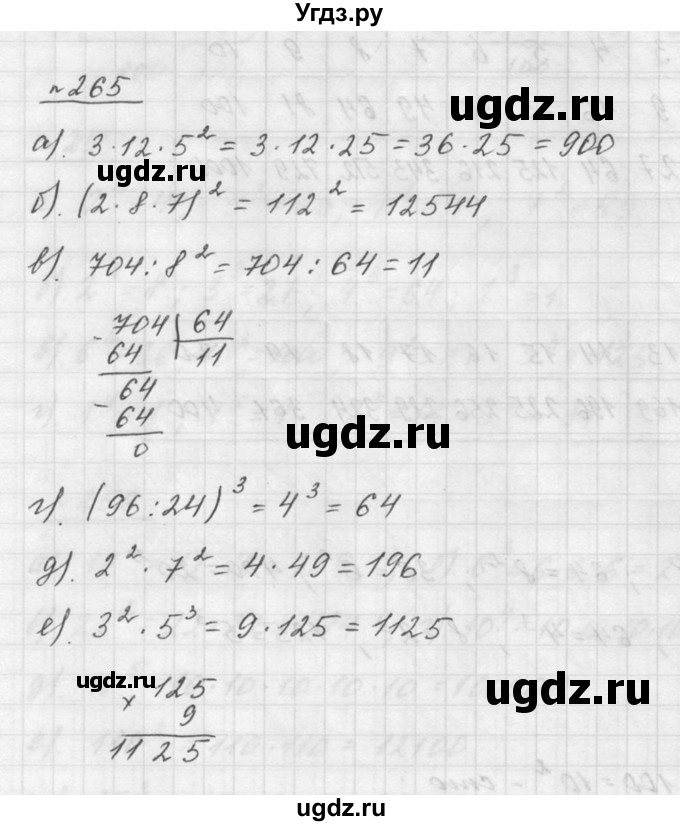 Угдз.ру
№265
ugdz.ru
а). 3·12·5² = 3·12·25 = 36·25 = 900
ugdz.ru
б). (2·8·7)² = 112² = 12544
в). 704:8² = 704:64 = 11
- 704 | 64
64 | 11
- 64
64
0
ugdz.ru
г). (96:24)³ = 4³ = 64
д). 2²·7² = 4·49 = 196
е). 3²·5³ = 9·125 = 1125
ugdz.ru
× 125
9
1125
ugdz.ru
ugdz.ru